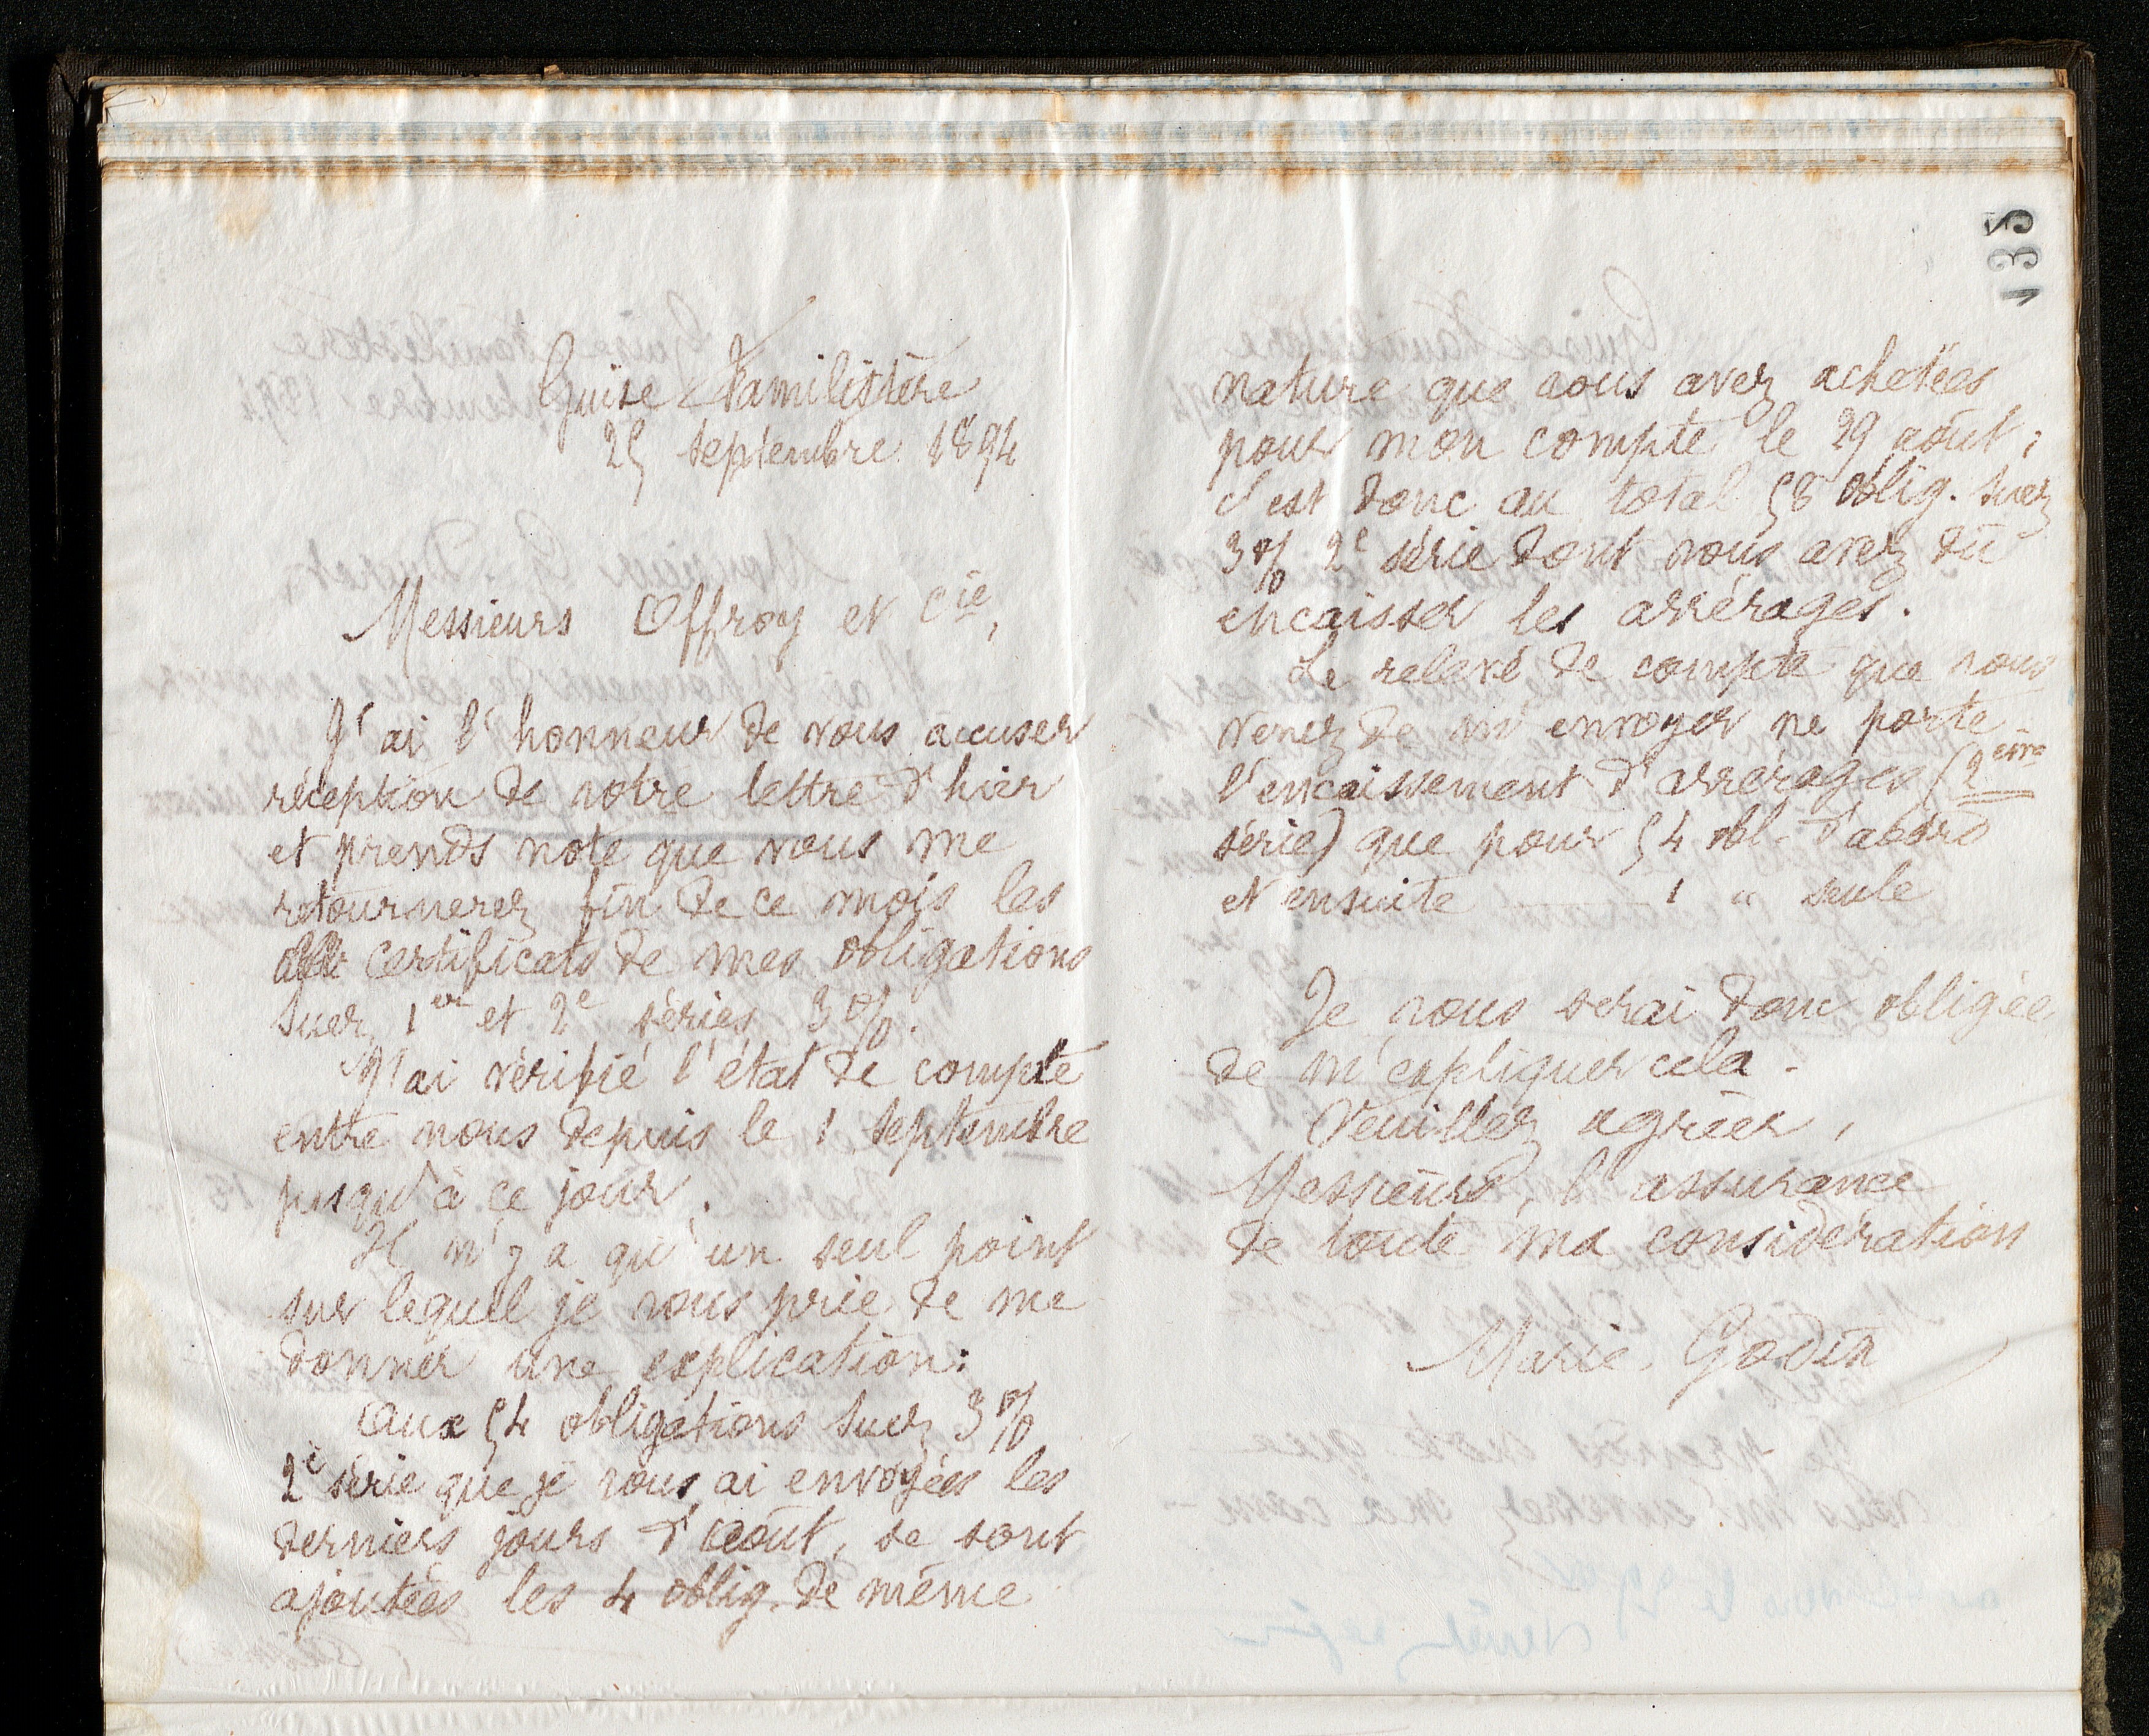 135
Guise Familistère
25 septembre 1894
Messieurs Offroy et Cie,
J'ai l'honneur de vous accuser
réception de votre lettre d'hier
et prends note que vous me
retournerez fin de ce mois les
certificats de mes obligations
Suez 1er et 2e séries 3%.
J'ai vérifié l'état de compte
entre nous depuis le 1 septembre
jusqu'à ce jour.
Il n'y a qu'un seul point
sur lequel je vous prie de me
donner une explication:
Aux 54 obligations Suez 3%
2e série que je vous ai envoyées les
derniers jours d'août, se sont
ajoutées les 4 oblig. de même
nature que vous avez achetées
pour mon compte le 29 août;
c'est donc au total 58 oblig. Suez
3% 2e série dont vous avez dû
encaisser les arrérages.
Le relevé de compte que vous
venez de m'envoyer ne porte
l'encaissement d'arrérages (2ème
série) que pour 54 obl. d'abord
et ensuite 1 " seule
Je vous serai donc obligée
de m'expliquer cela.
Veuillez agréer,
Messieurs, l'assurance
de toute ma considération
Marie Godin